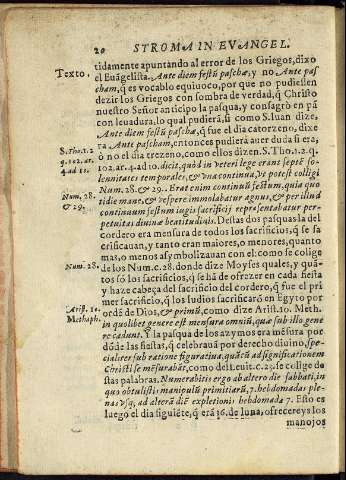 20 STROMA IN EVANGEL.
tidamente apuntando al error de los Griegos, dixo
Texto. el Euãgelista. Ante diem festũ paschæ, y no Ante pas
cham, q̃ es vocablo equiuoco, por que no pudiessen
dezir los Griegos con sombra de verdad, q̃ Christo
nuestro Señor anticipo la pasqua, y consagrò en pã
con leuadura, lo qual pudiera, si como S. Iuan dize,
Ante diem festũ pascha, q̃ fue el dia catorzeno, dixe
S. Tho. 1. 2 ra Ante pascham, entonces pudiera auer duda si era,
q. 102. ar. ò no el dia trezeno, como ellos dizen. S. Tho. 1. 2. q.
4 ad 10. 102. ar. 4. ad 10. dicit, quòd in veteri lege erant septẽ so-
lennitates temporales, & vna continua, vt potest colligi
Num. 28. Num. 28. & 29. Erat enim continuũ festum, quia quo
& 29. tidie mane, & vespere immolabatur agnus, & per illud
continuum festum iugis sacrificij repræsentabatur per-
petuitas diuinæ beatitudinis. Destas dos pasquas la del
cordero era mensura de todos los sacrificios, q̃ se sa
crificauan, y tanto eran maiores, o menores, quanto
mas, o menos asymbolizauan con el: como se colige
Num. 28. de los Num. c. 28. donde dize Moyses quales, y quã-
tos sõ los sacrificios, q̃ se hã de ofrezer en cada fiesta
y haze cabeça del sacrificio del cordero, q̃ fue el pri
mer sacrificio, q̃ los ludios sacrificarõ en Egyto por
Arist. 10. ordẽ de Dios, & primũ, como dize Arist. 10. Meth.
Methaph. in quolibet genere est mensura omniũ, quæ sub illo gene
re cadunt. Y la pasqua de los azymos era mẽsura por
dõde las fiestas, q̃ celebrauã por derecho diuino, spe-
cialiter sub ratione figuratiua, quãtũ ad significationem
Christi se mẽsurabãt, como del Leuit. c. 23. se collige de
stas palabras. Numerabitis ergo ab altero die sabbati, in
quo obtulistis manipulũ primitiarũ, 7. hebdomadas ple-
nas vsq; ad alterã diẽ expletionis hebdomadæ 7. Esto es
luego el dia siguiẽte, q̃ erã 16. de luna, ofrecereys los
manojos